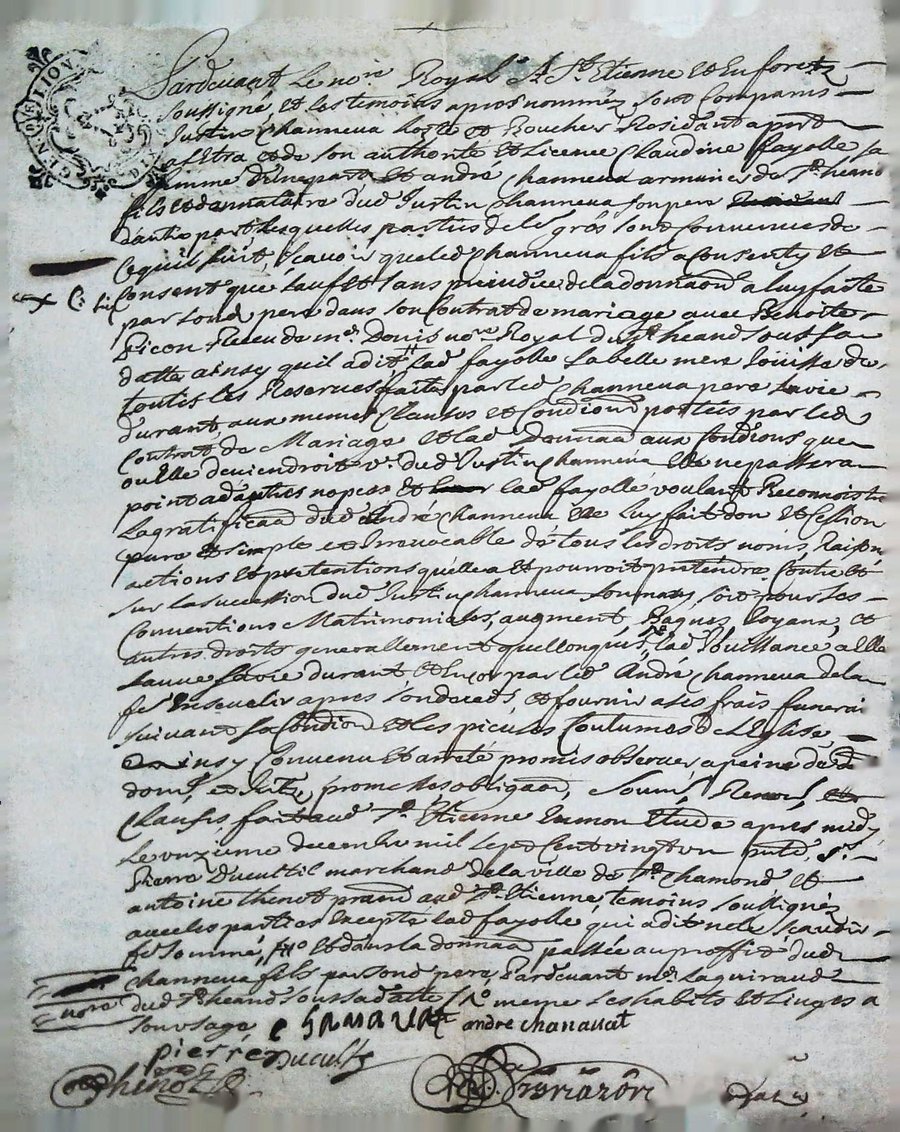 Pardevant Le no.re Royal A St. Etienne et En foretz
soussigné, et les temoins apres nommés sont Comparus
Justin Channeva hoste et Boucher Residant a
et de son authorité et Licence Claudine fayolle sa
femme d'Une part et andre Channeva armurier de St. heand
fils et donnataire dud Justin Channeva son pere
d'autre part Lesquelles parties de gré sont Convenues de
Ce quil suit, scavoir que led Channeva fils a Consenty et
Consent que sauf et sans prejudice de la donnaon a luy faite
par sond pere dans son Contrat de mariage avec Benoite
Picon Receu de me. Denis no.re Royal du St. heand sous sa
datte ainsy quil a dit, lad fayolle sa belle mere Jouisse de
toutes les Reserves faites par led Channeva pere sa vie
durant, aux memes Clauses et Condions portées par led
Contrat de Mariage et lad Donnaon aux Condions que
ou Elle deviendroit v.e dud Justin Channeva Elle ne passera
point a d'autres nopces et lad fayolle voulant Reconnoistre
La gratificaon dud André Channeva Elle Luy fait don et Cession
pure et simple et Irrevocable de tous les droits noms, Raisons
actions et pretentions quelle a et pourroit pretendre Contre et
sur la succession dud Justin Channeva son mary, soit pour les
Conventions Matrimoniales, augment, Bagues Joyaux, et
autres droits generallement quellonques, lad Jouissance a Elle
sauve sa vie durant et Encor par led André Channeva de la
fe. Ensevelir apres son deces, et fournir a ses frais funerai
suivant sa Condion et les pieuses Coutumes de L'Eglise
ainsy Convenu et arreté promis observer a peine de
dom. et Int., promesses obligaon, soum., Renon.,
Clauses, fait aud St. Etienne En mon Etude apres midy
Le onzieme decembre mil sept Cent vingt un pnts. Sr.
Pierre Ducultil marchand de la ville de St. Chamond et
antoine thenot praen aud St. Etienne, temoins soussignés
avec les parties Excepte lad fayolle qui a dit ne le scavoir
fe. sommé, et dans la donnaon passée au proffit dud
Channeva fils par sond pere, Pardevant me. Laguiraud
dud St. heand sous sa datte meme Les habits et Linges a
son usage
Chanavat andre chanavat
pierre Ducultil
Thenot